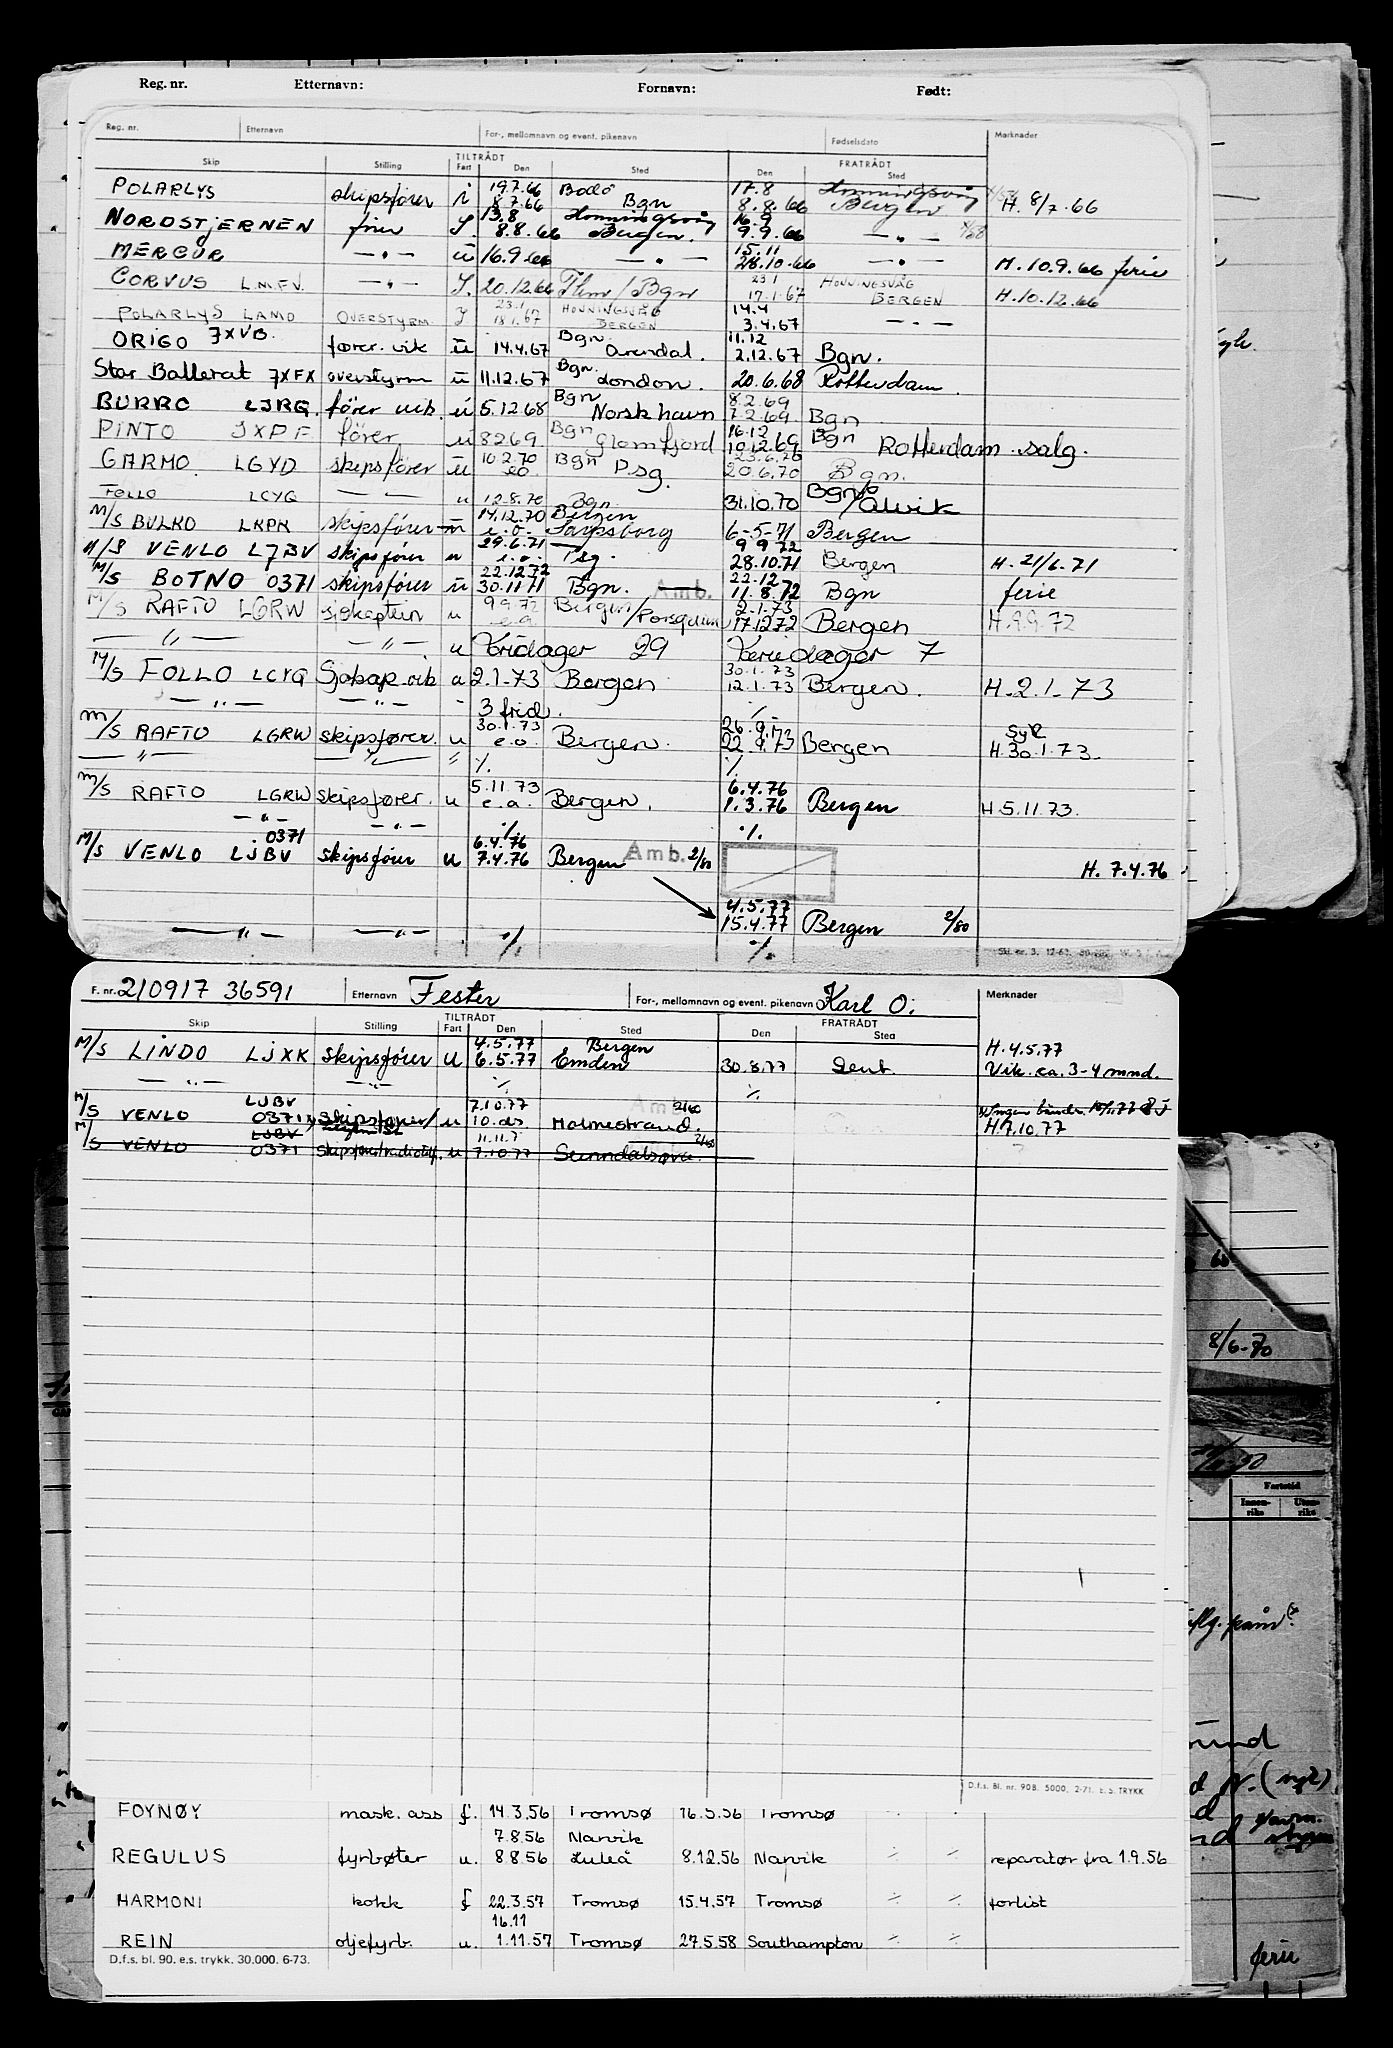 Reg. nr. Etternavn: Fornavn: Født:
Reg. nr. Etternavn For-, mellomnavn og event. pikenavn Fødselsdato Merknader
TILTRÅDT FRATRÅDT
Skip Stilling Fart Den Sted Den Sted
19.7.66 Bodö 17.8 Honningsvåg
POLARLYS skipsfører i 8.7.66 Bgn 8.8.66 Bergen H. 8/7.66
13.8 Honningsvåg 16.9
NORDSTJERNEN fører I. 8.8.66 Bergen. 9.9.66 — " —
15.11
MERCUR — " — u 16.9.66 — " — 28.10.66 — " — H. 10.9.66 ferie
23.1 HONNINGSVÅG
CORVUS L.M.F.V. — " — I. 20.12.66 Thm / Bgn 17.1.67 BERGEN H.10.12.66
23.1 HONNINGSVÅG 14.4
POLARLYS LAMD OVERSTYRM I 18.1.67 BERGEN 3.4.67 — " —
Bgn. 11.12
ORIGO JXVB. fører. vik u 14.4.67 Arendal. 2.12.67 Bgn.
Bgn.
Star Ballerat JXFX overstyrm u 11.12.67 London. 20.6.68 Rotterdam.
Bgn 8.2.69
BURRO LJRG. förer vik. u 5.12.68 Norsk havn 7.2.69 Bgn
Bgn 16.12 Bgn
PINTO JXPF förer u 8269 Glomfjord 10.12.69 Rotterdam salg.
10.2.70 Bgn 23.6.70
GARMO. LGYD skipsfører u eo Psg. 20.6.70 Bgn.
12.8.70 Bgn Bgn/
FOLLO LCYG — " — u 31.10.70 Ålvik
14.12.70 Bergen
M/S BULKO LKPK skipsfører u e.o. Sarpsborg 6-5-71 Bergen
29.6.71 9 9 72
M/S VENLO LJBV skipsfører u e.o. Psg. 28.10.71 Bergen H. 21/6.71
22.12.72 22.12
M/S BOTNO 0371 skipsfører u 30.11.71 Bgn. Amb. 11.8.72 Bgn ferie
9.9.72 2.1.73
M/S RAFTO LGRW sjökaptein u e.o Bergen/Porsgrunn 17.12.72 Bergen H.9.9.72
— " — — " — u Fridager 29 Feriedager 7
30.1.73
M/S FOLLO LCYG Sjøkap vik u 2.1.73 Bergen 12.1.73 Bergen. H-2.1.73
— " — — " — - 3 frid. %
30.1.73 26.9.73 Syk
M/S RAFTO LGRW skipsfører. u e.o. Bergen. 22.9.73 Bergen H.30.1.73.
— " — — " — " % %
5.11.73 6.4.76
M/S RAFTO LGRW skipsfører. u e.o. Bergen. 1.3.76 Bergen H.5.11.73.
— " — — " — % %
0371 6.4.76
M/S VENLO LJBV skipsfører u 7.4.76 Bergen Amb. 2/80 H. 7.4.76
4.5.77
15.4.77 Bergen 2/80
— " — — " — % %
F. nr. 210917 36591 Etternavn Fester For-, mellomnavn og event. pikenavn Karl O. Merknader
TILTRÅDT FRATRÅDT
Skip Stilling Fart Den Sted Den Sted
4.5.77 Bergen H.4.5.77
M/S LINDO LJXK skipsfører u 6.5.77 Emden 30.8.77 Gent. Vik. ca. 3-4 mnd.
— " — — " — % %
LJBV 7.10.77 Amb. 2/80
M/S VENLO 0371 skipsfører/ u 10. ds Holmestrand. H.7.10.77
LJBV 11.11.7 2/80
M/S VENLO 0371 skipsfører/radiotlf. u 7.10.77 Sunndalsøra.
D.f.s. Bl. nr. 90B. 5000, 2-71. E.S. TRYKK
FOYNØY mask. ass f. 14.3.56 Tromsø 16.5.56 Tromsø
7.8.56 Narvik
REGULUS fyrbøter u. 8.8.56 Luleå 8.12.56 Narvik % % reparatør fra 1.9.56
HARMONI kokk f 22.3.57 Tromsø 15.4.57 Tromsø % % forlist
16.11
REIN oljefyrb. u. 1.11.57 Tromsø 27.5.58 Southampton % %
D.f.s. bl. 90. e.s. trykk. 30.000. 6-73.
8/6-70
Fartstid
Innen-riks Uten-riks
ferie